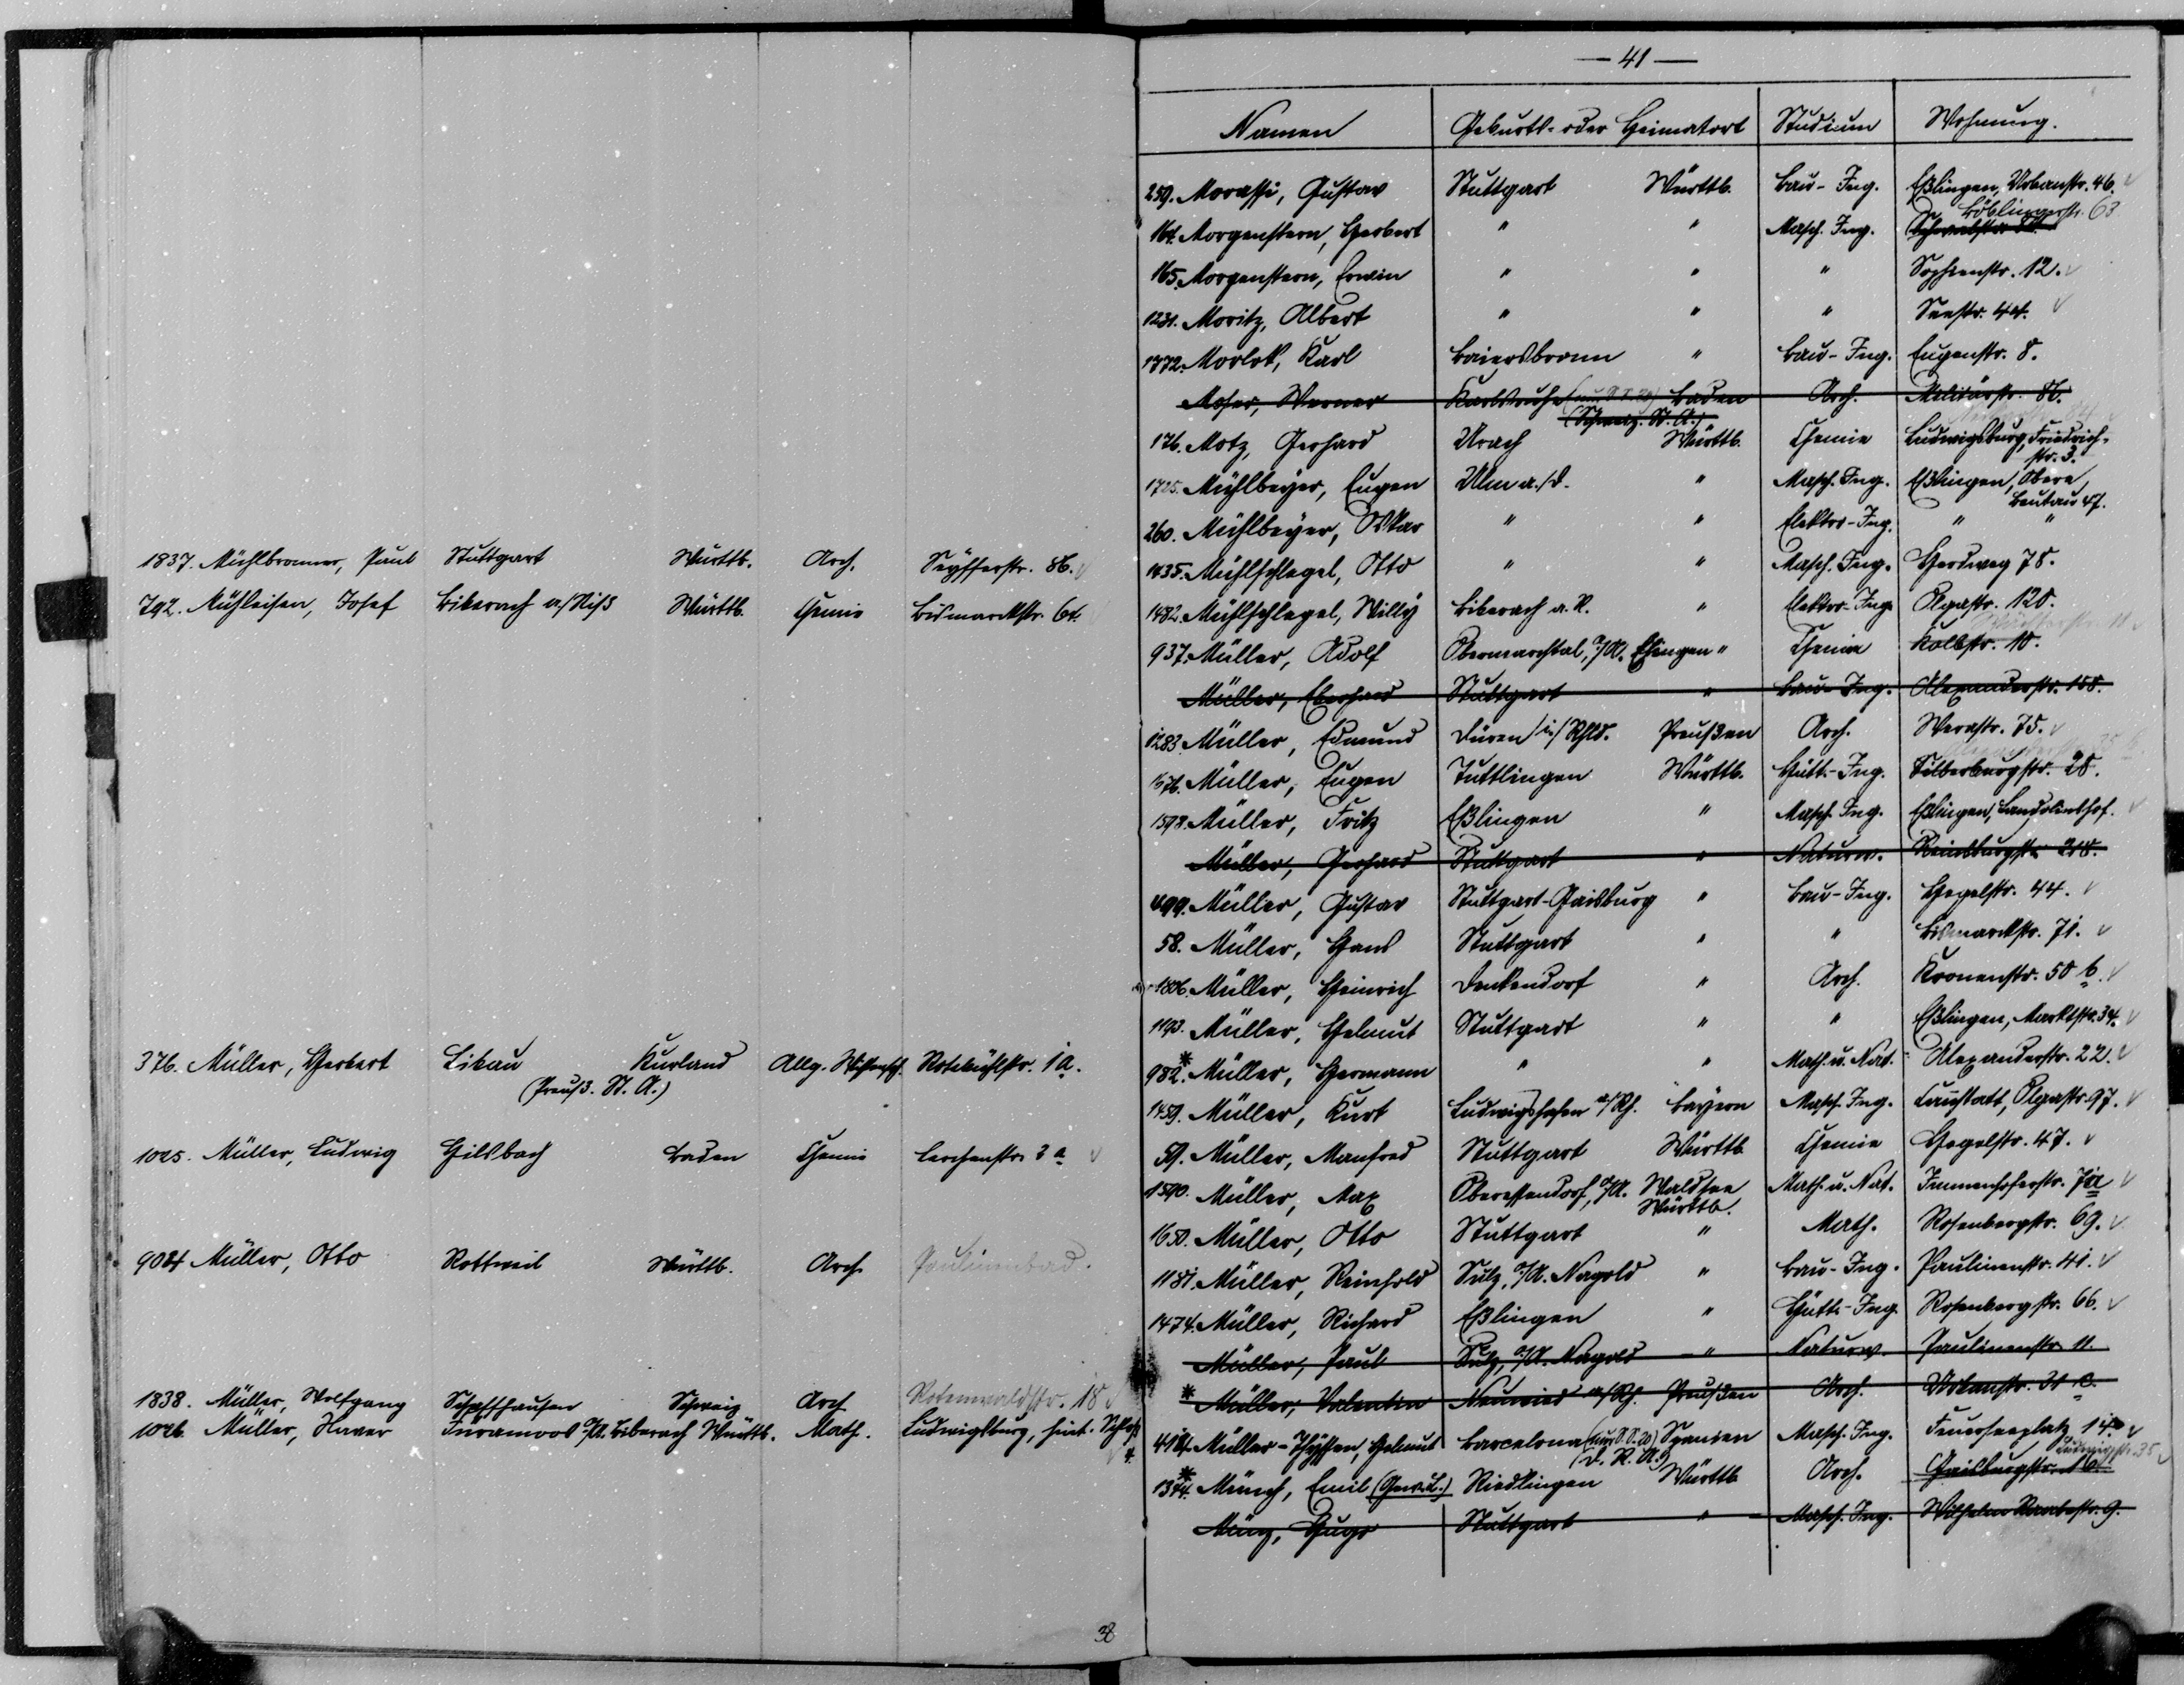 1837. Mühlbronner, Paul Stuttgart Württb. Arch. Seyfferstr. 86.
792. Mühleisen, Josef Biberach a/Riß Württb. Chemie Bismarckstr. 64.
376. Müller, Herbert Libau Kurland Allg. Wissensch. Rotebühlstr. 1a.
(Preuß. St. A.)
1025. Müller, Ludwig Hilsbach Baden Chemie Lerchenstr. 3a
904 Müller, Otto Rottweil Württb. Arch. Paulinenbad.
1838. Müller, Wolfgang Schaffhausen Schweiz Arch Rotenwaldstr. 18
1026. Müller, Xaver Füramoos O/A. Biberach Württb. Math. Ludwigsburg, hint. Schloß
4.
38
— 41 —
Namen Geburts- oder Heimatort Studium Wohnung.
259. Morassi, Gustav Stuttgart Württb. Bau-Ing. Eßlingen, Urbanstr. 46.
Böblingerstr. 63
164. Morgenstern, Herbert " " Masch. Ing.
165. Morgenstern, Erwin " " " Sophienstr. 12.
1231. Moritz, Albert " " " Seestr. 44.
1772. Morlok, Karl Baiersbronn " Bau-Ing. Eugenstr. 8.
Moser, Werner Karlsruhe (nur S.S. 20) Baden Arch. Militärstr. 86.
(Schweiz. St. A.)
176. Motz, Gerhard Urach Württb. Chemie Ludwigsburg, Friedrich-
str. 3.
1725. Mühlbeyer, Eugen Ulm a./D. " Masch. Ing. Eßlingen, Obere
Beutau 47.
260. Mühlbeyer, Oskar " " Elektro-Ing. " "
1435. Mühlschlegel, Otto " " Masch. Ing. Herdweg 78.
1482. Mühlschlegel, Willy Biberach a. R. " Elektro-Ing. Olgastr. 120.
937. Müller, Adolf Obermarchtal, O/A. Ehingen " Chemie Kolbstr. 10.
Müller, Eberhard Stuttgart " Bau-Ing. Alexanderstr. 158.
1283. Müller, Edmund Düren i/Rhld. Preußen Arch. Werastr. 75.
1676. Müller, Eugen Tuttlingen Württb. Hütt.-Ing. Silberburgstr. 28.
1598. Müller, Fritz Eßlingen " Masch. Ing. Eßlingen, Landolinshof.
Müller, Gerhard Stuttgart " Naturw. Reinsburgstr. 218.
499. Müller, Gustav Stuttgart-Gaisburg " Bau-Ing. Hegelstr. 44.
58. Müller, Hans Stuttgart " " Bismarckstr. 71.
1806. Müller, Heinrich Denkendorf " Arch. Kronenstr. 50 b.
1193. Müller, Helmut Stuttgart " " Eßlingen, Marktstr. 34.
982.* Müller, Hermann " " Math. u. Nat. Alexanderstr. 22.
1459. Müller, Kurt Ludwigshafen a/Rh. Bayern Masch. Ing. Cannstatt, Olgastr. 97.
59. Müller, Manfred Stuttgart Württb Chemie Hegelstr. 47.
1590. Müller, Max Oberessendorf, O/A. Waldsee Math. u. Nat. Immenhoferstr. 7a
Württb.
1650. Müller, Otto Stuttgart " Math. Rosenbergstr. 69.
1181. Müller, Reinhold Sulz, O/A. Nagold " Bau-Ing. Paulinenstr. 41.
1474. Müller, Richard Eßlingen " Hütt-Ing. Rosenbergstr. 66.
Müller, Paul Sulz, O/A. Nagold " Naturw. Paulinenstr. 11.
* Müller, Valentin Neuwied a/Rh. Preußen Arch. Urbanstr. 31 c.
Müller-Thyssen, Helmut Barcelona (nur S.S. 20) Spanien Masch. Ing. Feuerseeplatz 14.
(D. R. A.) Ludwigstr. 35
1344.* Münch, Emil (Gew. L.) Riedlingen Württb Arch. Gaisburgstr. 16.
Münz, Hugo Stuttgart " Masch. Ing. Wilhelm Raabestr. 9.